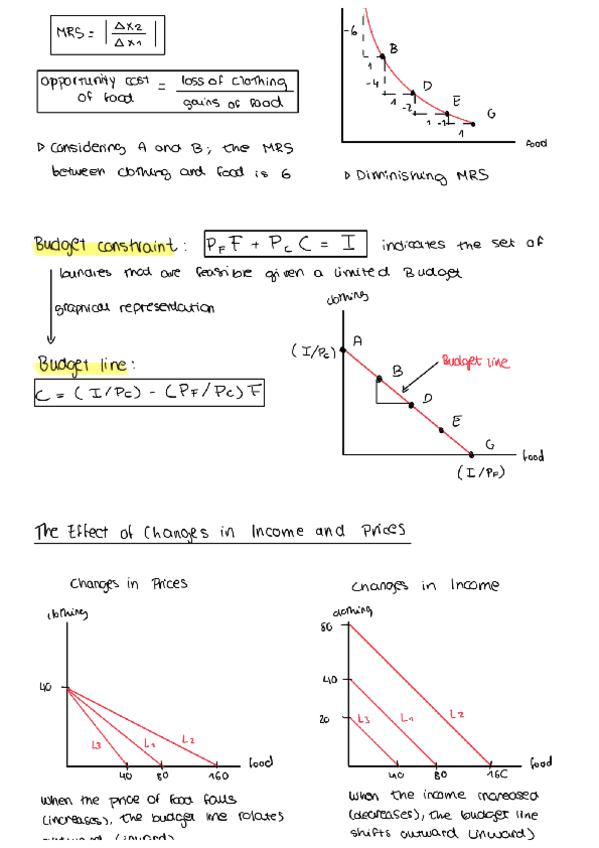 MRS = | Δx2 / Δx1 |
opportunity cost of food = loss of clothing / gains of food
▷ Considering A and B, the MRS
between clothing and food is 6
-6
1
B
-4
1
D
-2
1
E
-1
1
G
food
▷ Diminishing MRS
Budget constraint: PF F + PC C = I indicates the set of
bundles that are feasible given a limited Budget
graphical representation
Budget line:
C = (I/PC) - (PF/PC) F
clothing
(I/PC)
A
B
D
E
G
Budget line
food
(I/PF)
The Effect of Changes in Income and Prices
Changes in Prices
clothing
40
L3
L1
L2
40
80
160
food
when the price of food falls
(increases), the budget line rotates
outward (inward)
Changes in Income
clothing
80
40
20
L3
L1
L2
40
80
160
food
when the income increased
(decreases), the budget line
shifts outward (inward)